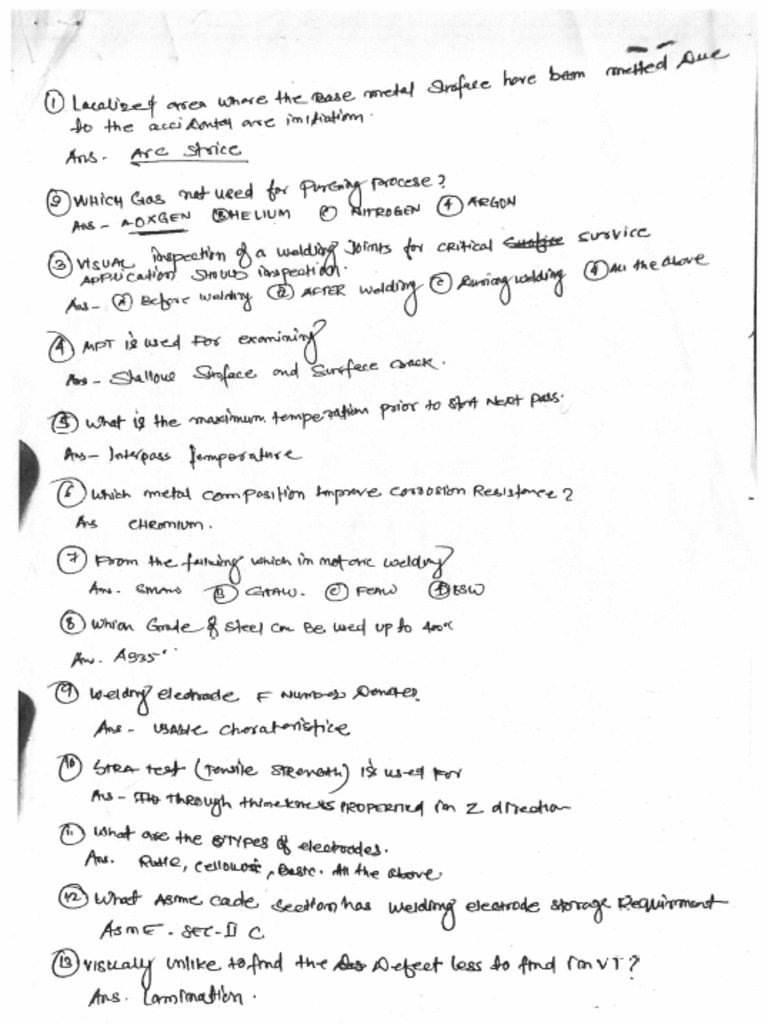 ① Localized area where the Base metal Surface have been melted Due
to the accidental arc initiation.
Ans. Arc Strice
② WHICH GAS not used for Purging Procese?
Ans - A OXGEN Ⓑ HELIUM Ⓒ NITROGEN ④ ARGON
③ VISUAL inspection of a welding Joints for critical survice
APPLICATION SHOULD inspection.
Ans - Ⓐ Before welding Ⓑ AFTER welding Ⓒ During welding ④ All the above
④ MPT is used For examining
Ans - Shallow Surface and Surfece crack.
⑤ What is the maximum temperature prior to start NEXT pass.
Ans - Interpass Temperature
⑥ Which metal composition Improve corrosion Resistance?
Ans CHROMIUM.
⑦ From the following which is not arc welding
Ans. SMAW Ⓑ GTAW. Ⓒ FCAW Ⓓ ESW
⑧ Which Grade of Steel can Be used up to 400°C
An. A935
⑨ Welding electrode F NUMBER Donates.
Ans - USABLE charateristice
⑩ STRA test (Tensile STRENGTH) is used For
Ans - THROUGH thickness PROPERTIED in Z direction
11 What are the TYPES of electrodes.
Ans. Rutile, Cellulosic, Basic. All the above.
12 What Asme code section has welding electrode storage Requirment
ASME - SEC-II C
13 VISUALLY unlike to find the Defect less to find in VT?
Ans. Lamination.